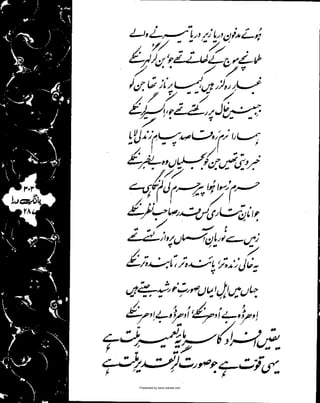 ہوئے مدفونِ دریا زیرِ دریا تیرنے والے
طمانچے موج کے کھاتے تھے جو بن کر گہر نکلے
غبارِ رہ گزر ہیں کیمیا پر ناز تھا جن کو
جبینیں خاک پر رکھتے تھے جو اکسیر گر نکلے
ہمارا نرم رو قاصد پیامِ زندگی لایا
خبر دیتی تھیں جن کو بجلیاں وہ بے خبر نکلے
حرم رسوا ہوا پیرِ حرم کی کم نگاہی سے
جوانانِ تتاری کس قدر صاحب نظر نکلے
زمیں سے نوریانِ آسماں پرواز کہتے تھے
یہ خاکی زندہ تر، پائندہ تر، تابندہ تر نکلے
جہاں میں اہلِ ایماں صورتِ خورشید جیتے ہیں
اِدھر ڈوبے اُدھر نکلے، اُدھر ڈوبے اِدھر نکلے
یقیں افراد کا سرمایۂ تعمیرِ ملت ہے
یہی قوت ہے جو صورت گرِ تقدیرِ ملت ہے
۳۰۳
بانگِ درا
۲۸۷
Presented by